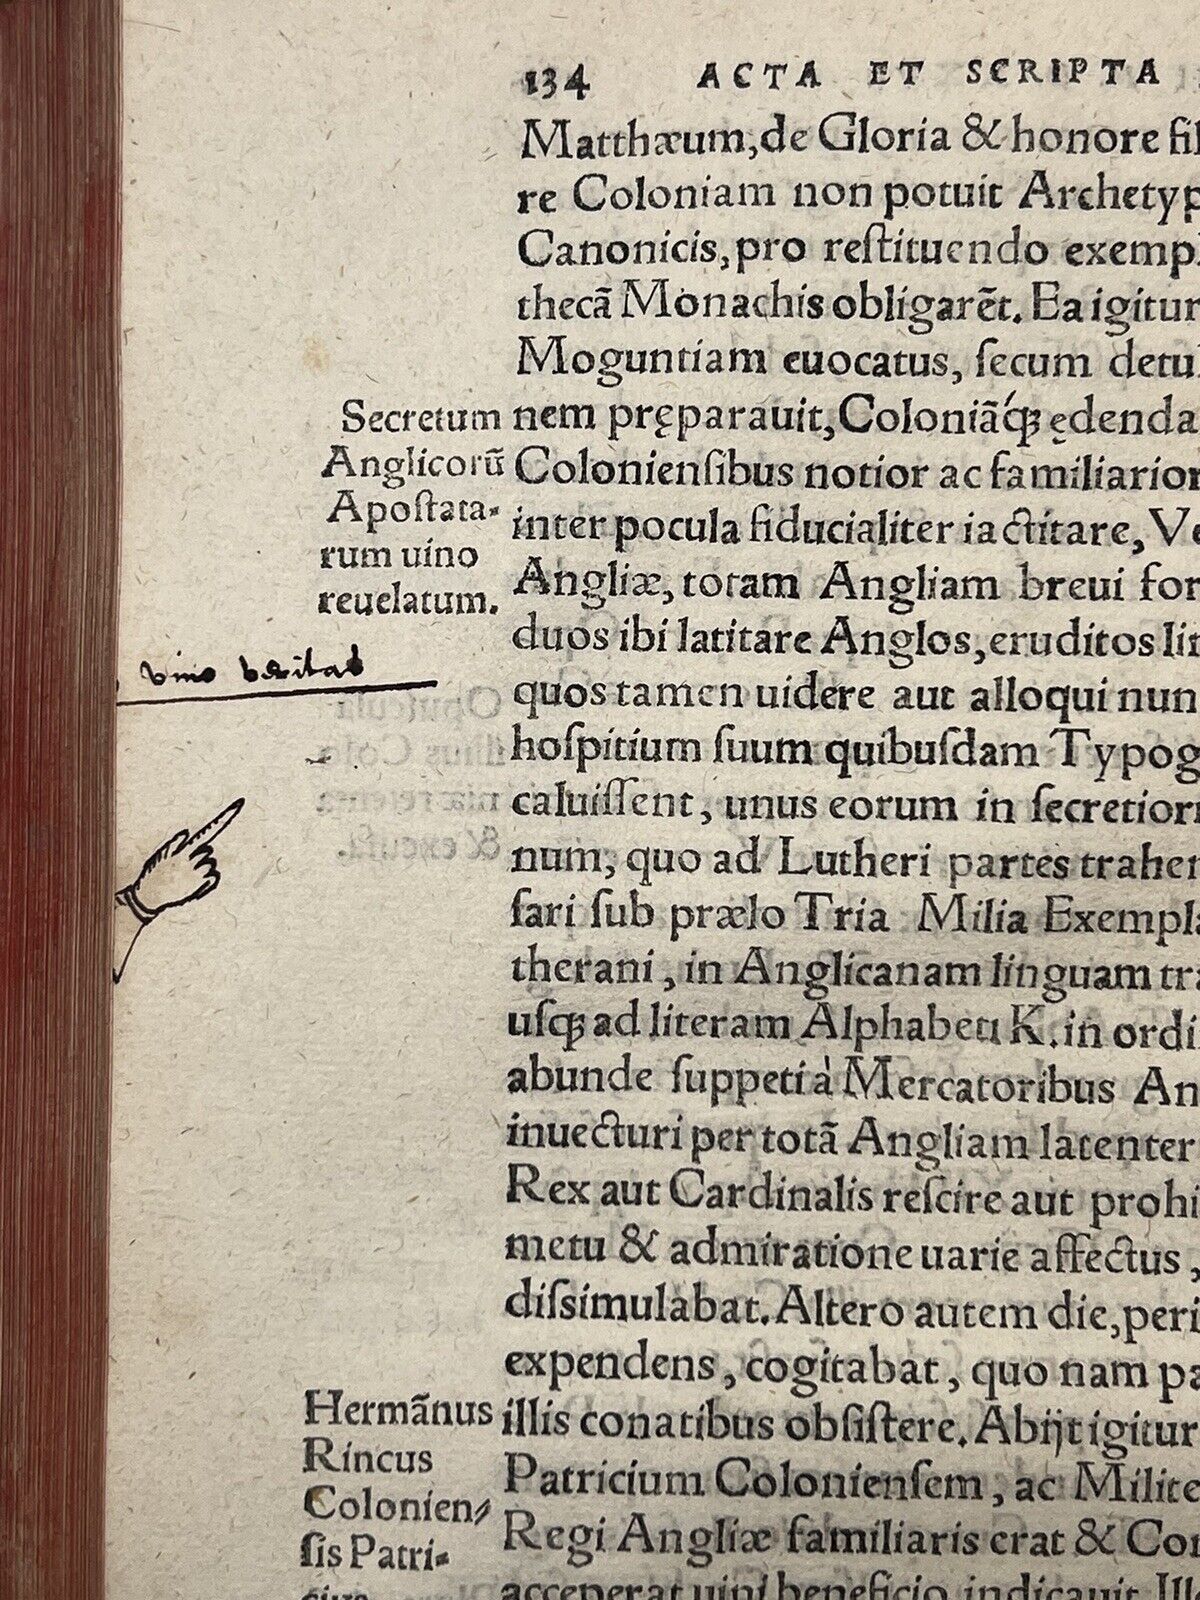 134 ACTA ET SCRIPTA
Matthæum, de Gloria & honore fil
re Coloniam non potuit Archetyp
Canonicis, pro reſtituendo exempl
thecã Monachis obligarẽt. Ea igitur
Moguntiam euocatus, ſecum detul
nem pręparauit, Coloniãq́ꝫ ędenda
Colonienſibus notior ac familiarior
inter pocula fiducialiter iactitare, Ve
Angliæ, totam Angliam breui for
duos ibi latitare Anglos, eruditos lin
quos tamen uidere aut alloqui nun
hoſpitium ſuum quibuſdam Typog
caluiſſent, unus eorum in ſecretiori
num, quo ad Lutheri partes traher
ſari ſub prælo Tria Milia Exempla
therani, in Anglicanam linguam tra
uſqꝫ ad literam Alphabeti K. in ordi
abunde ſuppeti à Mercatoribus An
inuecturi per totã Angliam latenter
Rex aut Cardinalis reſcire aut prohi
metu & admiratione uarie affectus,
diſsimulabat. Altero autem die, peri
expendens, cogitabat, quo nam pa
illis conatibus obſiſtere. Abijt igitur
Patricium Colonienſem, ac Milite
Regi Angliæ familiaris erat & Con
acceperat uini beneficio indicauit Ill
Secretum
Anglicorũ
Apoſtata-
rum uino
reuelatum.
vino veritas
Hermãnus
Rincus
Colonien-
ſis Patri-
cius